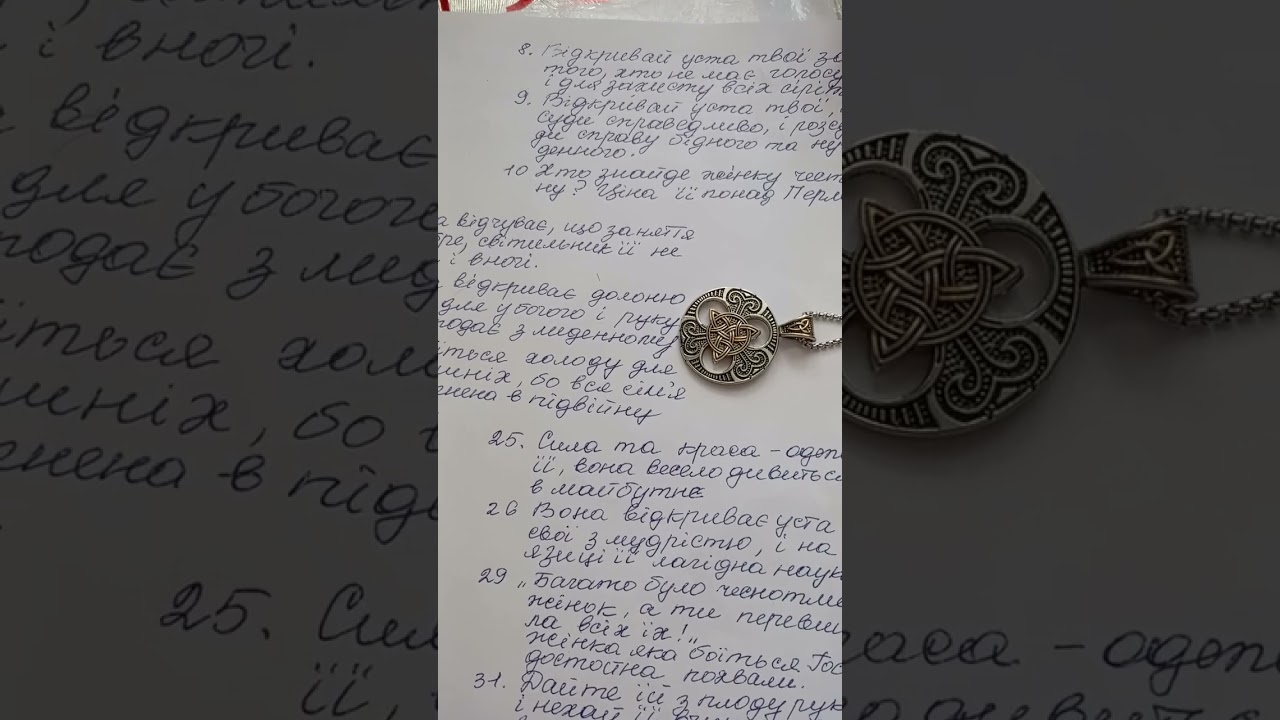 8. Відкривай уста твої за
того, хто не має голосу
і для захисту всіх сиріт
9. Відкривай уста твої,
суди справедливо, і розсу
ди справу бідного та ну
денного.
10 Хто знайде жінку чест
ну? Ціна її понад Перл
а відчуває, що заняття
ре, світильник її не
і вночі.
відкриває долоню
для убогого і руку
подає з міденному
їться холоду для
шніх, бо вся сім'я
гнена в підвійну
25. Сила та краса - одеж
її, вона весело дивиться
в майбутнє
26 Вона відкриває уста
свої з мудрістю, і на
язиці її лагідна наук
29 „Багато було чеснотли
жінок, а ти переви
ла всіх їх!"
жінка яка боїться Гос
достостна похвали.
31. Дайте їй з плоду рук
і нехай її